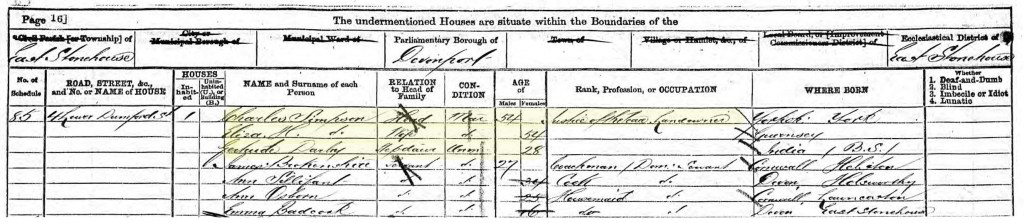 Page 16]
The undermentioned Houses are situate within the Boundaries of the
Civil Parish [or Township] of
City or Municipal Borough of
Municipal Ward of
Parliamentary Borough of
Town of
Village or Hamlet, &c., of
Local Board, or [Improvement Commissioners District] of
Ecclesiastical District of
East Stonehouse
Devonport
East Stonehouse
No. of Schedule
ROAD, STREET, &c., and No. or NAME of HOUSE
HOUSES
Inhabited
Uninhabited (U.), or Building (B.)
NAME and Surname of each Person
RELATION to Head of Family
CONDITION
AGE of
Males
Females
Rank, Profession, or OCCUPATION
WHERE BORN
Whether
1. Deaf-and-Dumb
2. Blind
3. Imbecile or Idiot
4. Lunatic
85 Durnford St 1 Charles Simpson Head Mar 54 Landowner York
Eliza H. do Wife do 54 Guernsey
Gertrude Darby Unm 28 India (B.S)
James Servant do 27 Coachman (Dom. Servant Cornwall Helston
Ann do do 24 Cook do Devon Holsworthy
Ann Osborn do do 25 Housemaid do Cornwall
Emma Badcock do do 16 do do Devon East Stonehouse